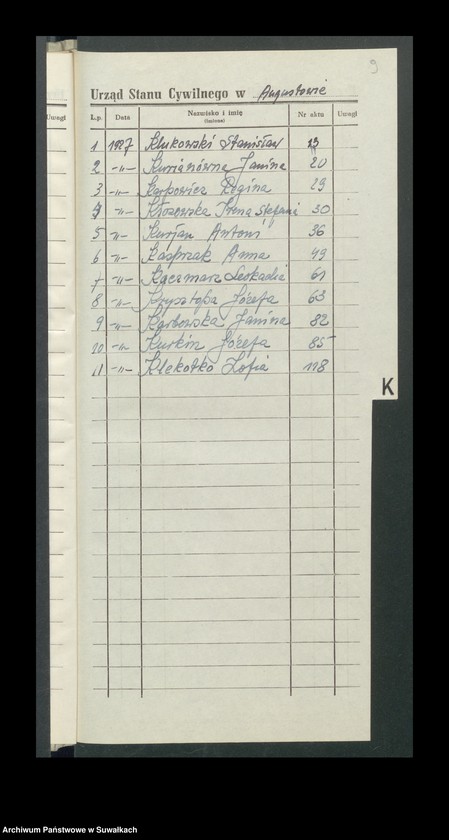 9
Urząd Stanu Cywilnego w Augustowie
Uwagi
L.p. Data Nazwisko i imię (imiona) Nr aktu Uwagi
1 1927 Klukowski Stanisław 13
2 -„- Janina 20
3 -„- Karkowicz Regina 29
4 -„- Kłosowska Irena Stefania 30
5 -„- Kurjan Antoni 36
6 -„- Kasprzak Anna 49
7 -„- Kaczmarz Leokadia 61
8 -„- Krysztofa Józefa 63
9 -„- Karbowska Janina 82
10 -„- Kurkin Józefa 85
11 -„- Klekotko Zofia 118
K
Archiwum Państwowe w Suwałkach